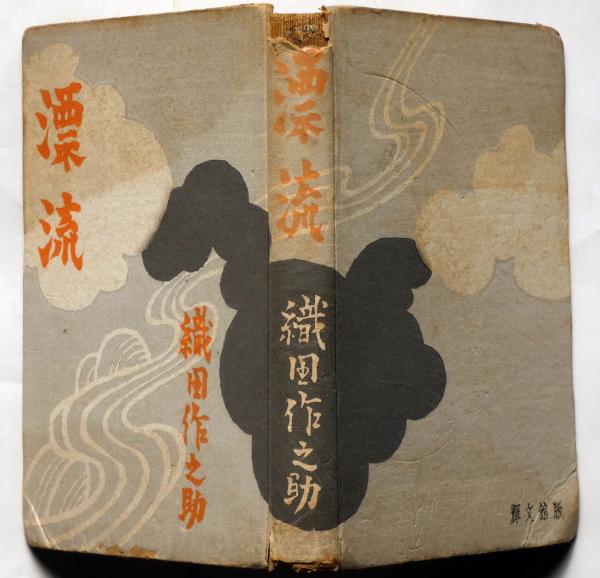 漂流
織田作之助
漂流
織田作之助
輝文館版